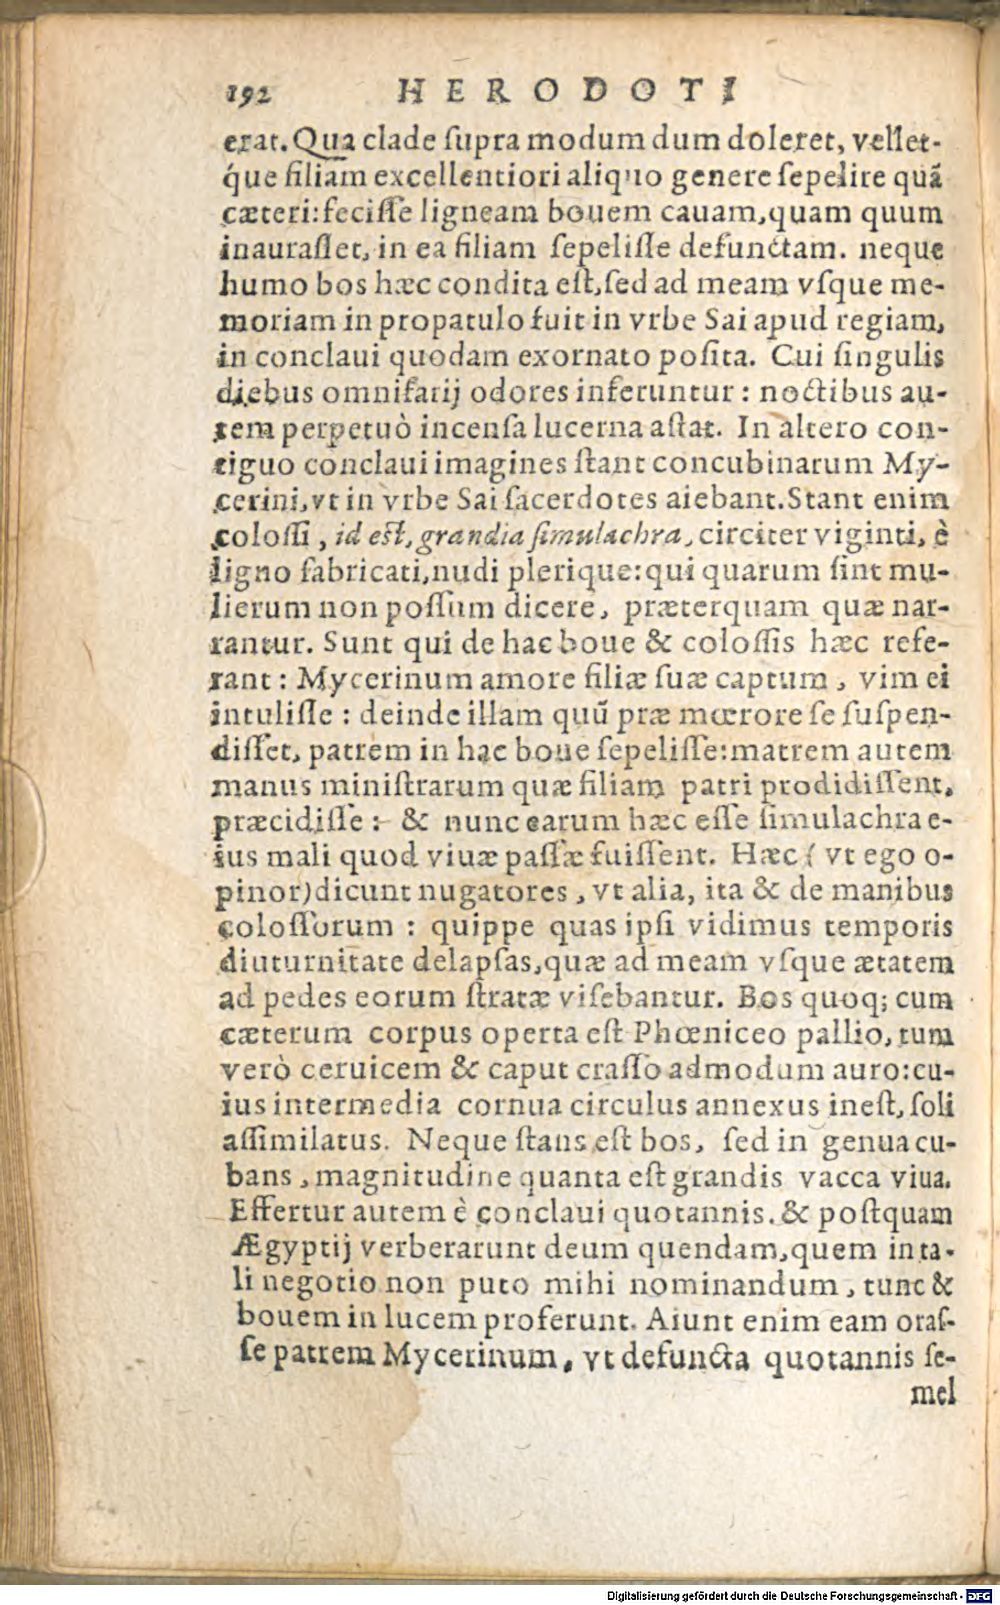 192 HERODOTI
erat. Qua clade ſupra modum dum doleret, vellet-
q́ue filiam excellentiori aliquo genere ſepelire quã
cæteri: feciſſe ligneam bouem cauam, quam quum
inauraſſet, in ea filiam ſepeliſſe defunctam. neque
humo bos hæc condita eſt, ſed ad meam vſque me-
moriam in propatulo fuit in vrbe Sai apud regiam,
in conclaui quodam exornato poſita. Cui ſingulis
diebus omnifarij odores inferuntur: noctibus au-
tem perpetuò incenſa lucerna aſtat. In altero con-
tiguo conclaui imagines ſtant concubinarum My-
cerini, vt in vrbe Sai ſacerdotes aiebant. Stant enim
coloſſi, id eſt, grandia ſimulachra, circiter viginti, è
ligno fabricati, nudi plerique: qui quarum ſint mu-
lierum non poſſum dicere, præterquam quæ nar-
rantur. Sunt qui de hac boue & coloſſis hæc refe-
rant: Mycerinum amore filiæ ſuæ captum, vim ei
intuliſſe: deinde illam quũ præ mœrore ſe ſuſpen-
diſſet, patrem in hac boue ſepeliſſe: matrem autem
manus miniſtrarum quæ filiam patri prodidiſſent,
præcidiſſe: & nunc earum hæc eſſe ſimulachra e-
ius mali quod viuæ paſſæ fuiſſent. Hæc (vt ego o-
pinor) dicunt nugatores, vt alia, ita & de manibus
coloſſorum: quippe quas ipſi vidimus temporis
diuturnitate delapſas, quæ ad meam vſque ætatem
ad pedes eorum ſtratæ viſebantur. Bos quoq; cum
cæterum corpus operta eſt Phœniceo pallio, tum
verò ceruicem & caput craſſo admodum auro: cu-
ius intermedia cornua circulus annexus ineſt, ſoli
aſſimilatus. Neque ſtans eſt bos, ſed in genua cu-
bans, magnitudine quanta eſt grandis vacca viua.
Effertur autem è conclaui quotannis. & poſtquam
Ægyptij verberarunt deum quendam, quem in ta-
li negotio non puto mihi nominandum, tunc &
bouem in lucem proferunt. Aiunt enim eam oraſ-
ſe patrem Mycerinum, vt defuncta quotannis ſe-
mel
Digitalisierung gefördert durch die Deutsche Forschungsgemeinschaft - DFG